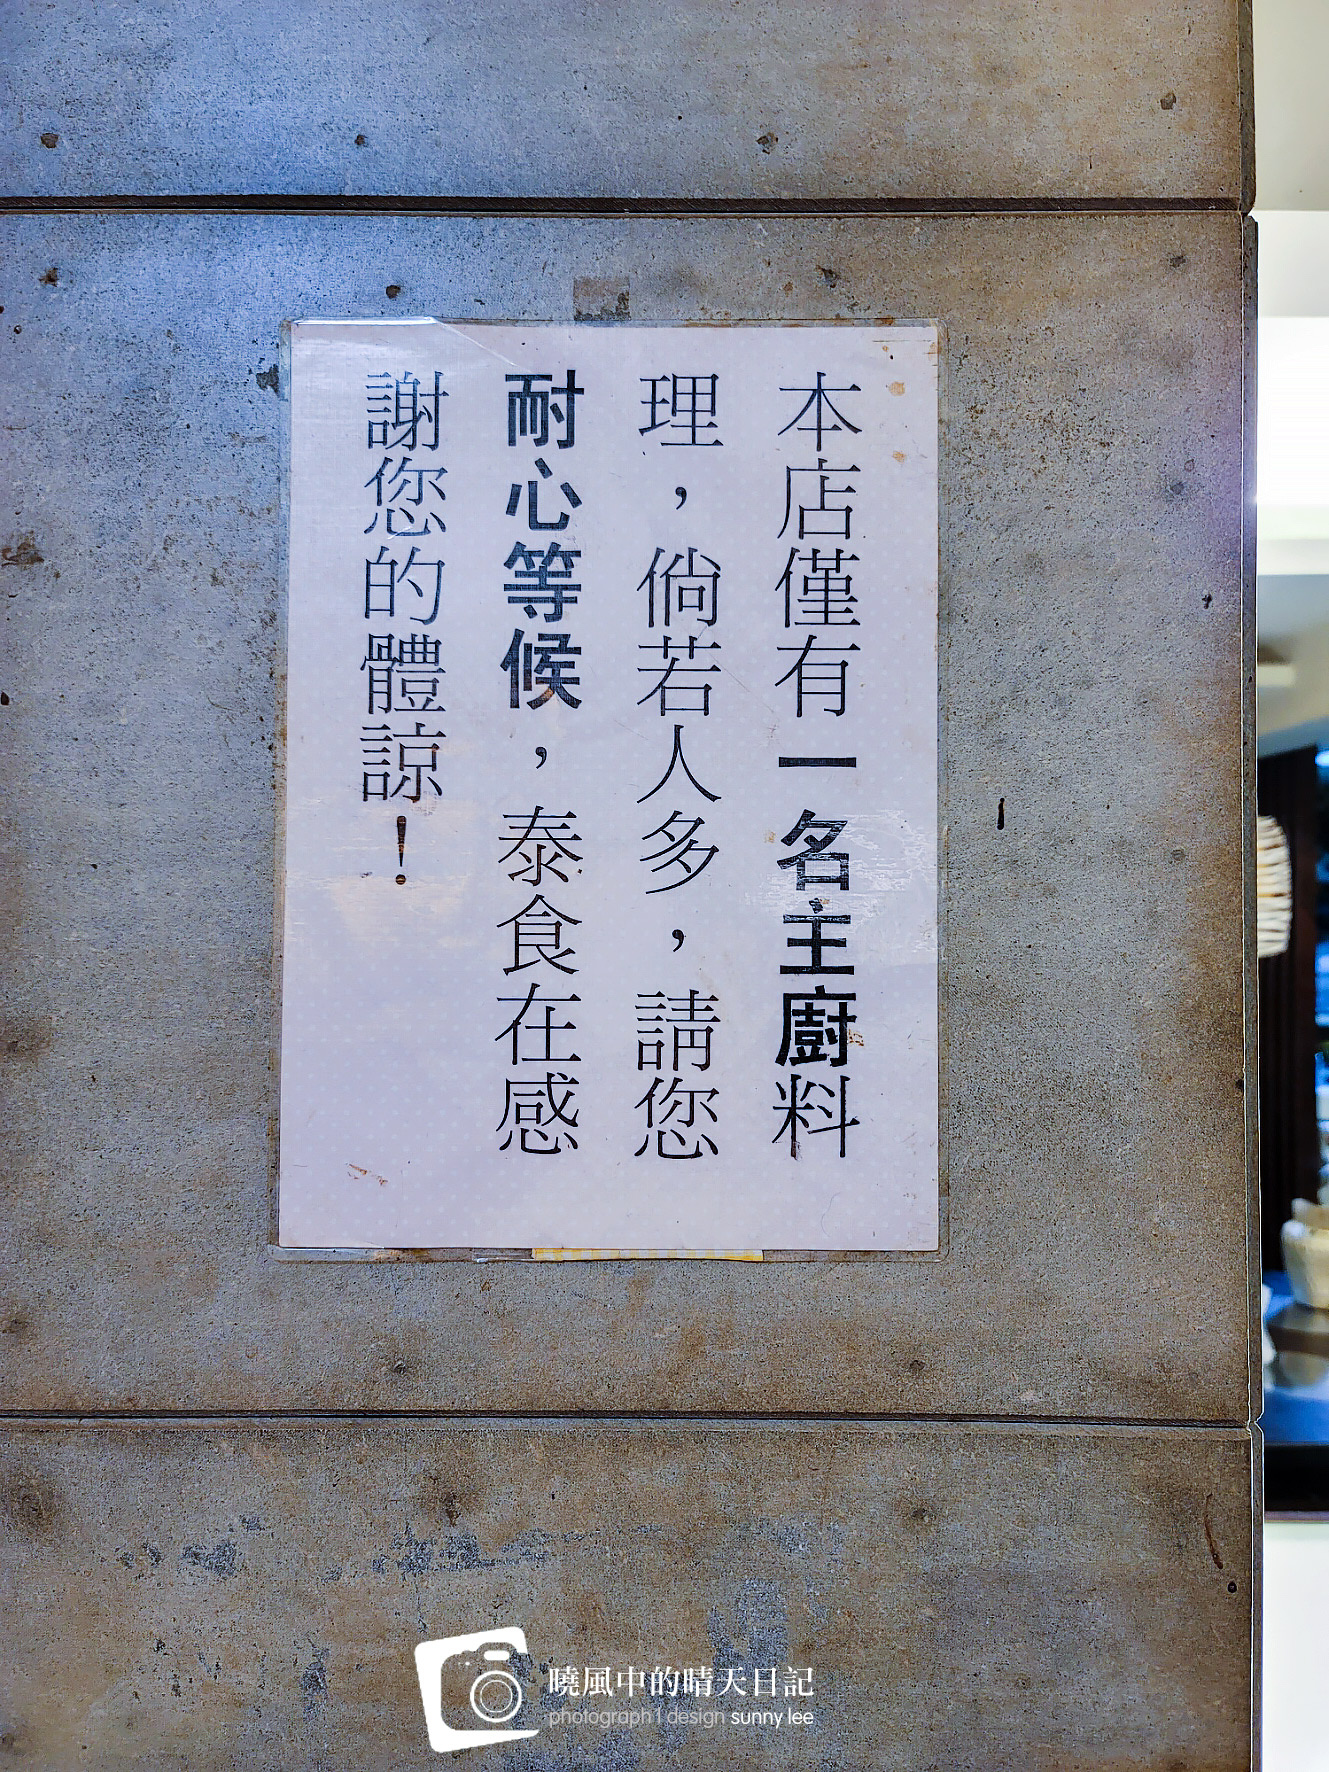 本店僅有一名主廚料
理，倘若人多，請您
耐心等候，泰食在感
謝您的體諒！
曉風中的晴天日記
photograph | design sunny lee